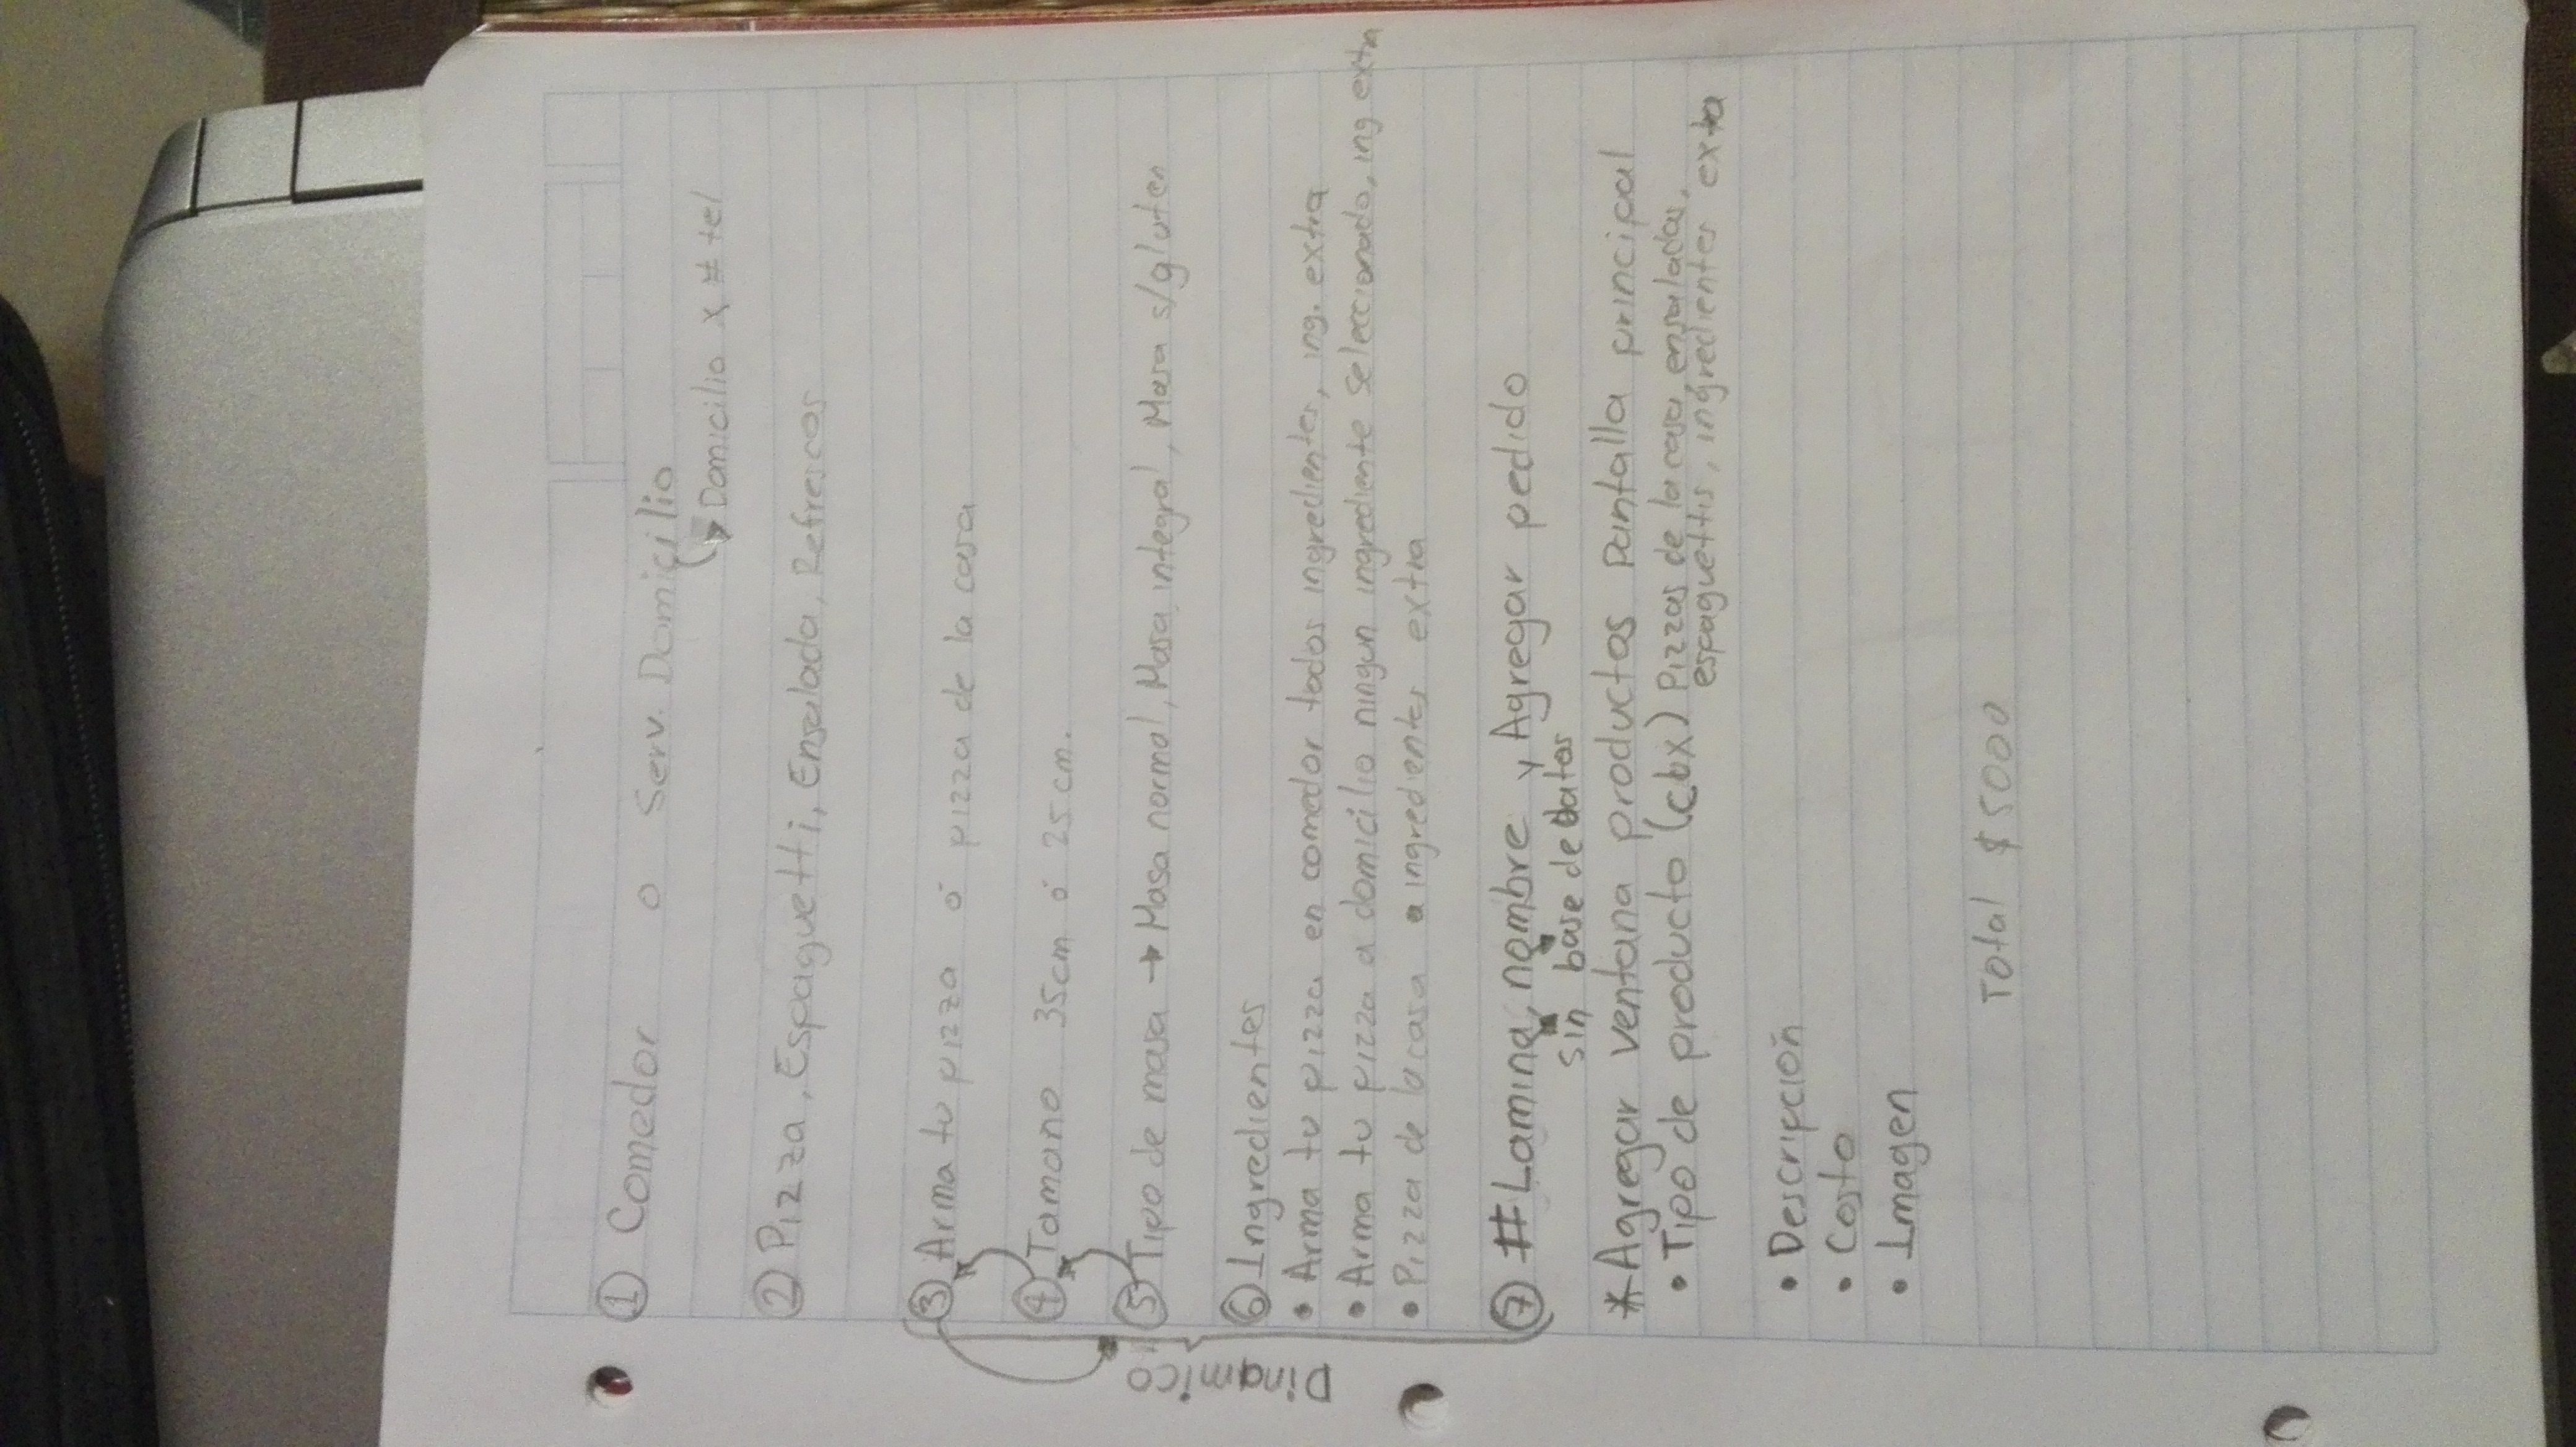 ① Comedor o Serv. Domicilio
Domicilio x # tel
② Pizza, Espaguetti, Ensalada, Refrescos
③ Arma tu pizza ó pizza de la casa
④ Tamano 35cm ó 25cm.
⑤ Tipo de masa → Masa normal, Masa integral, Masa s/gluten
Dinamico
⑥ Ingredientes
• Arma tu pizza en comedor todos ingredientes, ing. extra
• Arma tu pizza a domicilio ningun ingrediente seleccionado, ing extra
• Pizza de la casa • ingredientes extra
⑦ # Lamina, nombre y Agregar pedido
sin base de datos
* Agregar ventana productos pantalla principal
• Tipo de producto (cbx) Pizzas de la casa, ensaladas,
espaguettis, ingredientes exta
• Descripción
• Costo
• Imagen
Total $5000